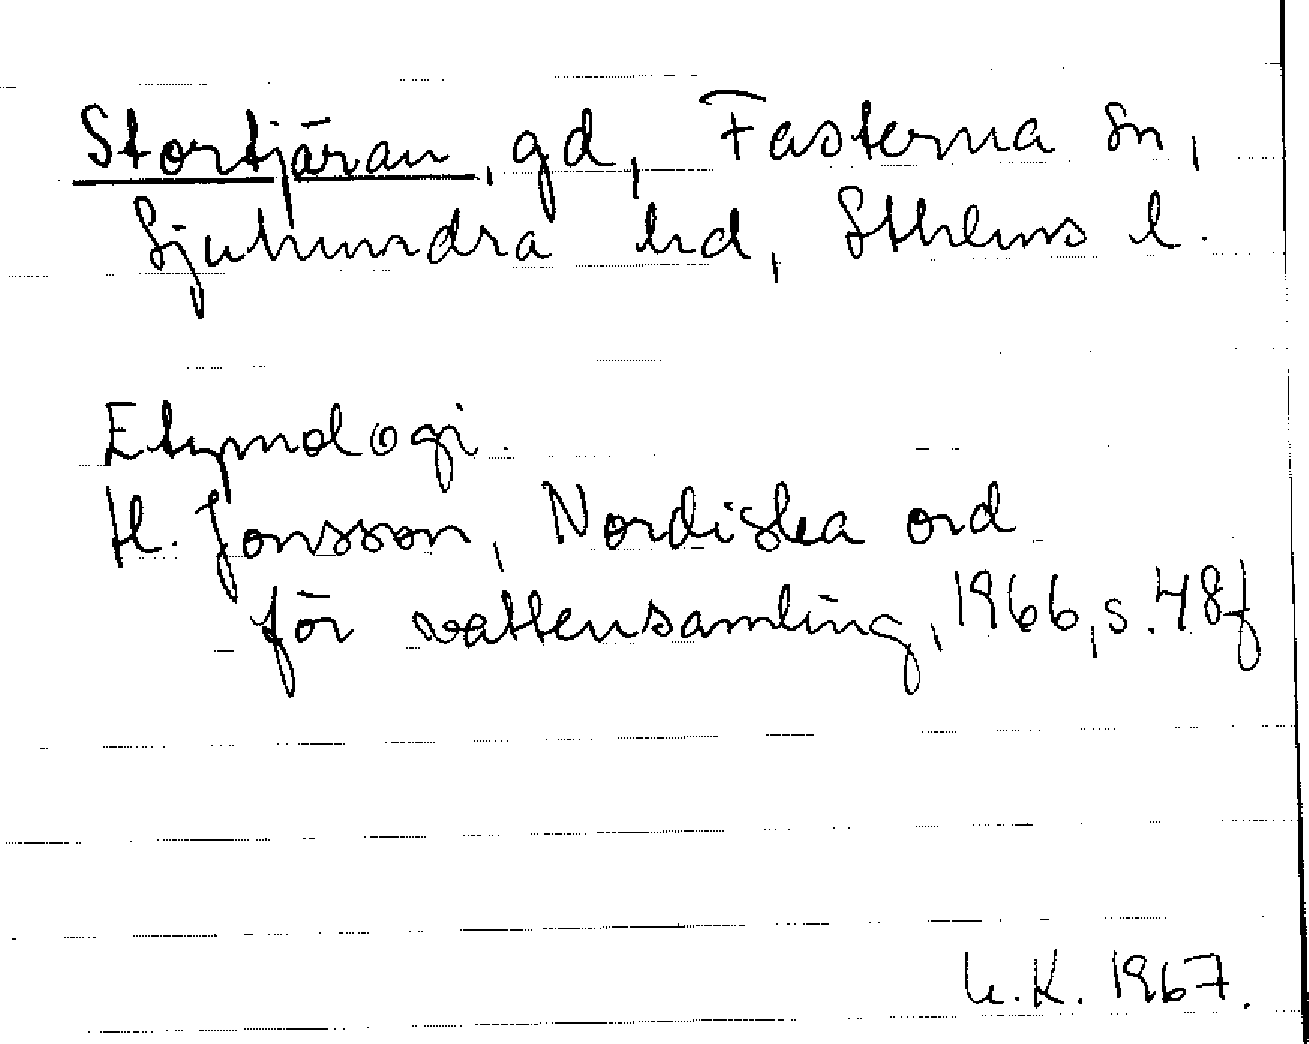 Stortjäran, gd, Fasterna sn,
Sjuhundra hd, Sthlms l.
Etymologi.
H. Jonsson, Nordiska ord
för vattensamling, 1966, s. 48f
K. 1967.